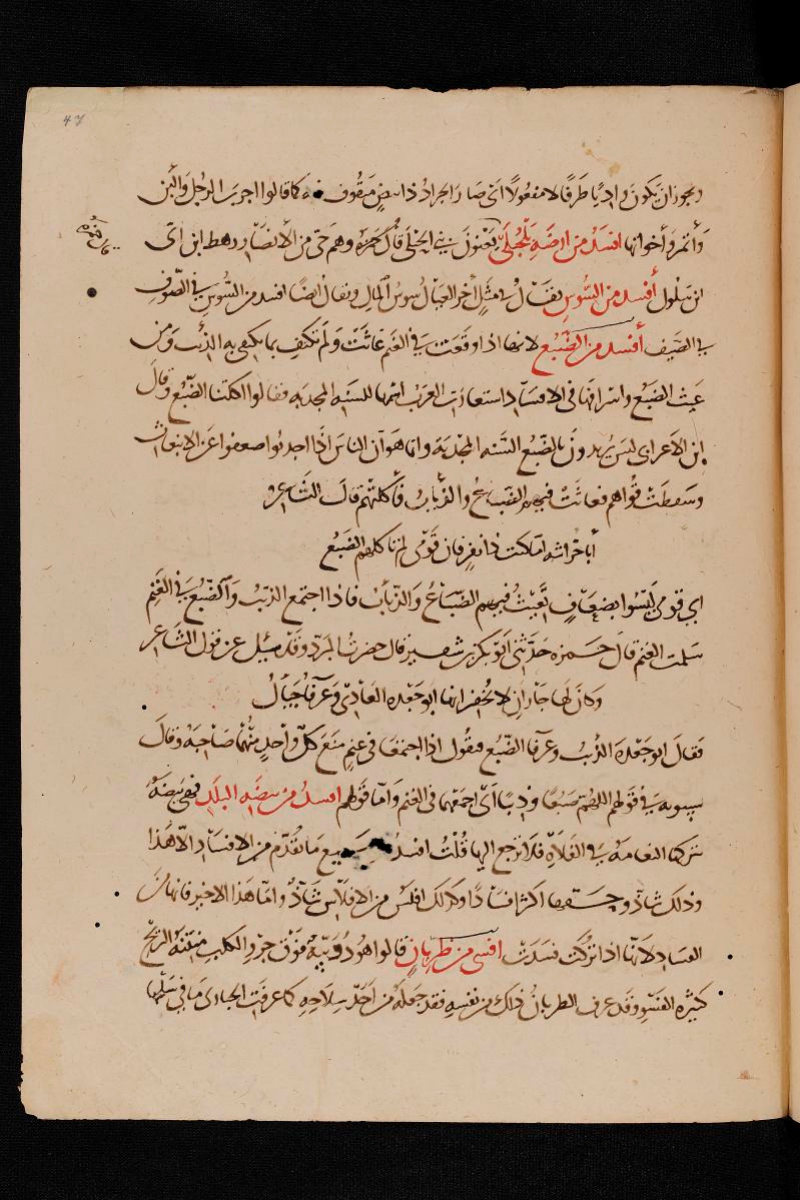 47
ويجوز ان يكون واديا ظرفا لا مفعولا اى صار الجراد ذا بيض منقوف فيه كما قالوا اجرب الرجل والبن
واتمر واخواتها افسد من ارضة بلحبلى يعنون بنى الحبلى قال حمزة وهم حى من الانصار رهط ابن ابى
ابن سلول أفسد من السوس يقال فى مثل أخر العيال سوس المال ويقال ايضا افسد من السوس فى الصوف
فى الصيف أفسد من الضبع لانها اذا وقعت فى الغنم عاثت ولم تكتف بما يكتفى به الذئب ومن
عيث الضبع واسرافها فى الافساد استعارت العرب اسمها للسنة المجدبة فقالوا اكلتنا الضبع وقال
ابن الاعرابى ليس يريدون بالضبع السنة المجدبة وانما هو أن الناس اذا اجدبوا ضعفوا عن الانبعاث
وسقطت قواهم فعاثت فيهم الضباع والذياب فأكلتهم قال الشاعر
أبا خراشة اما كنت ذا نفر فان قومى لم تاكلهم الضبع
اى قومى ليسوا بضعاف تعيث فيهم الضباع والذياب فاذا اجتمع الذئب والضبع فى الغنم
سلمت الغنم قال حمزة حدثنى أبو بكر بن شقير قال حضرت المبرد وقد سئل عن قول الشاعر
وكان لها جاران لا يخفرانها ابو جعدة العادى وعرفاء جيأل
فقال ابو جعدة الذئب وعرفا الضبع فيقول اذا اجتمعا فى غنم منع كل واحد منهما صاحبه وقال
سيبويه فى قولهم اللهم ضبعا وذيبا اى اجمعهما فى الغنم واما قولهم افسد من بيضة البلد فهى بيضة
تتركها النعامة فى الفلاة فلا ترجع اليها قلت افسد جميع ما تقدم من الافساد الا هذا
وذلك شاذ و اكثر فسادا وكذلك افلس من الافلاس شاذ واما هذا الاخير فانها من
الفساد لانها اذا تركت فسدت افسى من ظربان قالوا هو دويبة فوق جرو الكلب منتنة الريح
كثيرة الفسو وقد عرف الظربان ذلك من نفسه فقد جعله من أحد سلاحه كما عرفت الحبارى ما فى سلحها